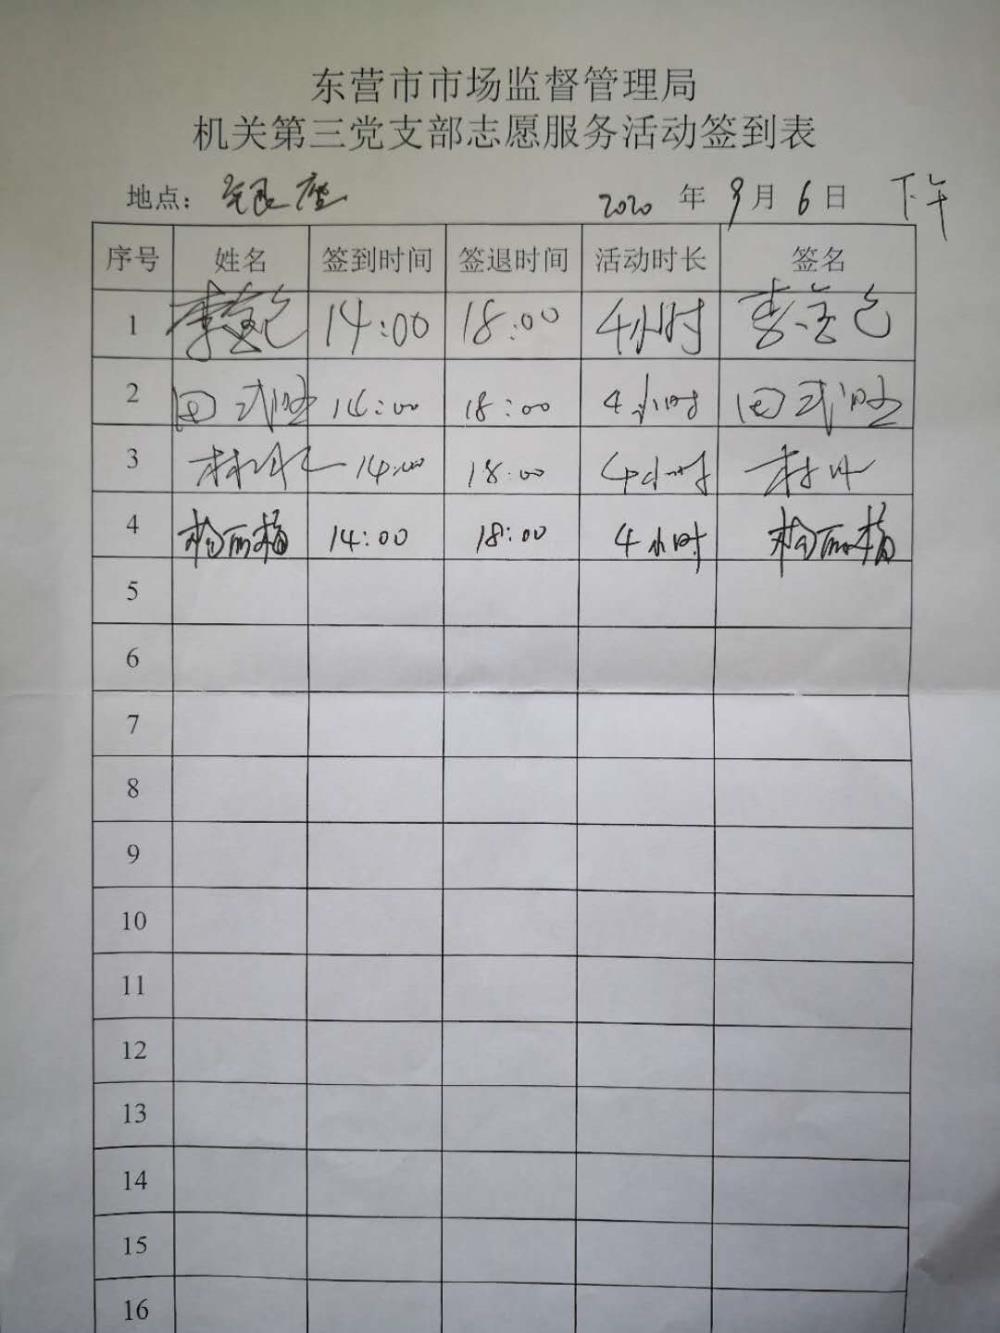 东营市市场监督管理局
机关第三党支部志愿服务活动签到表
地点: 银座 2020 年 9 月 6 日 下午
序号 姓名 签到时间 签退时间 活动时长 签名
1 14:00 18:00 4小时
2 14:00 18:00 4小时
3 14:00 18:00 4小时
4 14:00 18:00 4小时
5
6
7
8
9
10
11
12
13
14
15
16